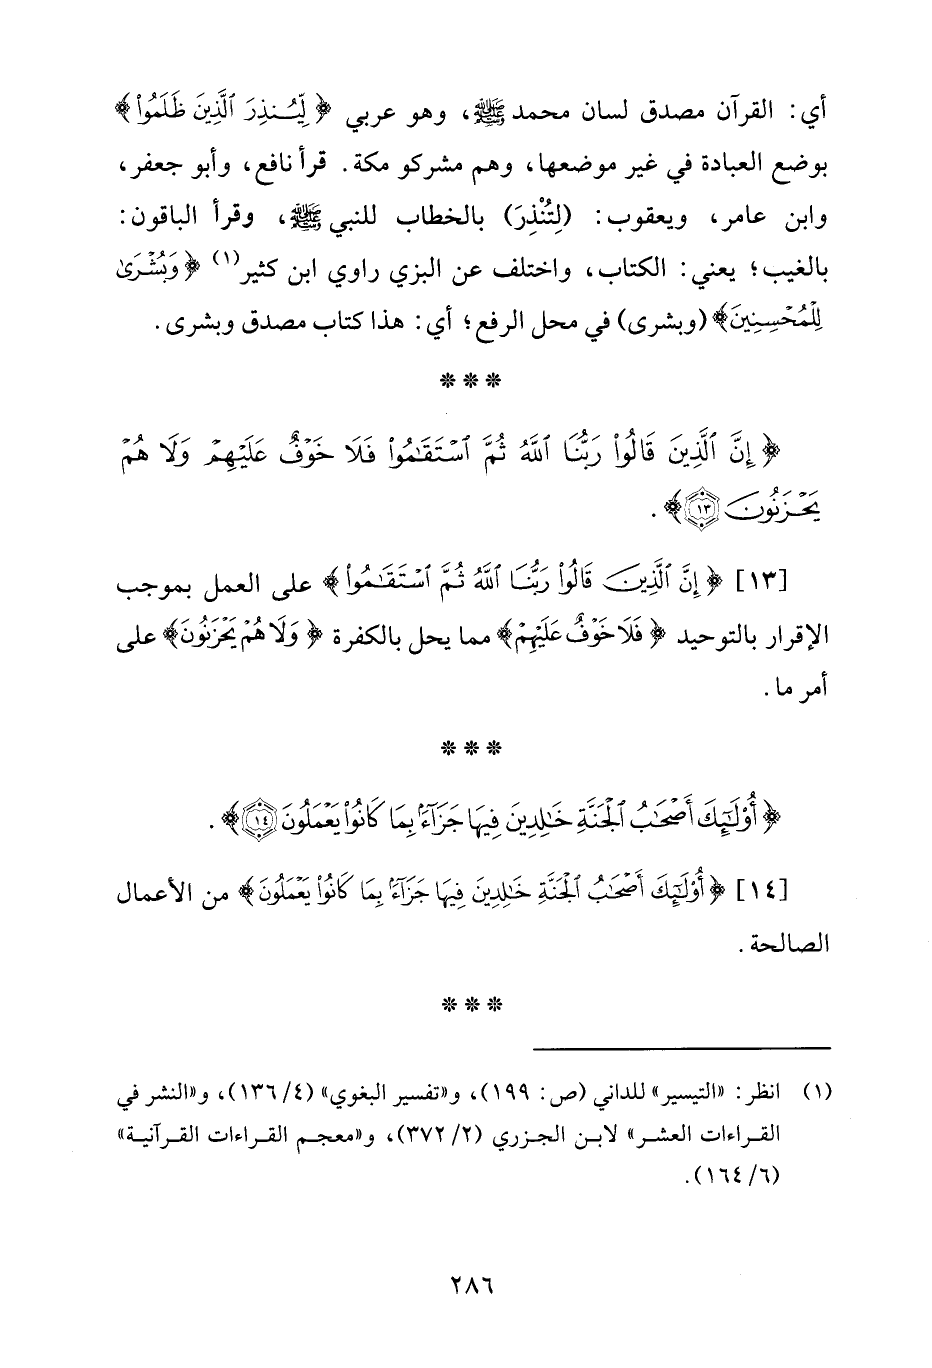 أي: القرآن مصدق لسان محمد ﷺ، وهو عربي ﴿لِّيُنذِرَ ٱلَّذِينَ ظَلَمُواْ﴾
بوضع العبادة في غير موضعها، وهم مشركو مكة. قرأ نافع، وأبو جعفر،
وابن عامر، ويعقوب: (لِتُنْذِرَ) بالخطاب للنبي ﷺ، وقرأ الباقون:
بالغيب؛ يعني: الكتاب، واختلف عن البزي راوي ابن كثير(١) ﴿وَبُشۡرَىٰ
لِلۡمُحۡسِنِينَ﴾ (وبشرى) في محل الرفع؛ أي: هذا كتاب مصدق وبشرى.
* * *
﴿إِنَّ ٱلَّذِينَ قَالُواْ رَبُّنَا ٱللَّهُ ثُمَّ ٱسۡتَقَٰمُواْ فَلَا خَوۡفٌ عَلَيۡهِمۡ وَلَا هُمۡ
يَحۡزَنُونَ ١٣﴾.
[١٣] ﴿إِنَّ ٱلَّذِينَ قَالُواْ رَبُّنَا ٱللَّهُ ثُمَّ ٱسۡتَقَٰمُواْ﴾ على العمل بموجب
الإقرار بالتوحيد ﴿فَلَا خَوۡفٌ عَلَيۡهِمۡ﴾ مما يحل بالكفرة ﴿وَلَا هُمۡ يَحۡزَنُونَ﴾ على
أمر ما.
* * *
﴿أُوْلَٰٓئِكَ أَصۡحَٰبُ ٱلۡجَنَّةِ خَٰلِدِينَ فِيهَا جَزَآءَۢ بِمَا كَانُواْ يَعۡمَلُونَ ١٤﴾.
[١٤] ﴿أُوْلَٰٓئِكَ أَصۡحَٰبُ ٱلۡجَنَّةِ خَٰلِدِينَ فِيهَا جَزَآءَۢ بِمَا كَانُواْ يَعۡمَلُونَ﴾ من الأعمال
الصالحة.
* * *
(١) انظر: «التيسير» للداني (ص: ١٩٩)، و«تفسير البغوي» (٤/ ١٣٦)، و«النشر في
القراءات العشر» لابن الجزري (٢/ ٣٧٢)، و«معجم القراءات القرآنية»
(٦/ ١٦٤).
٢٨٦